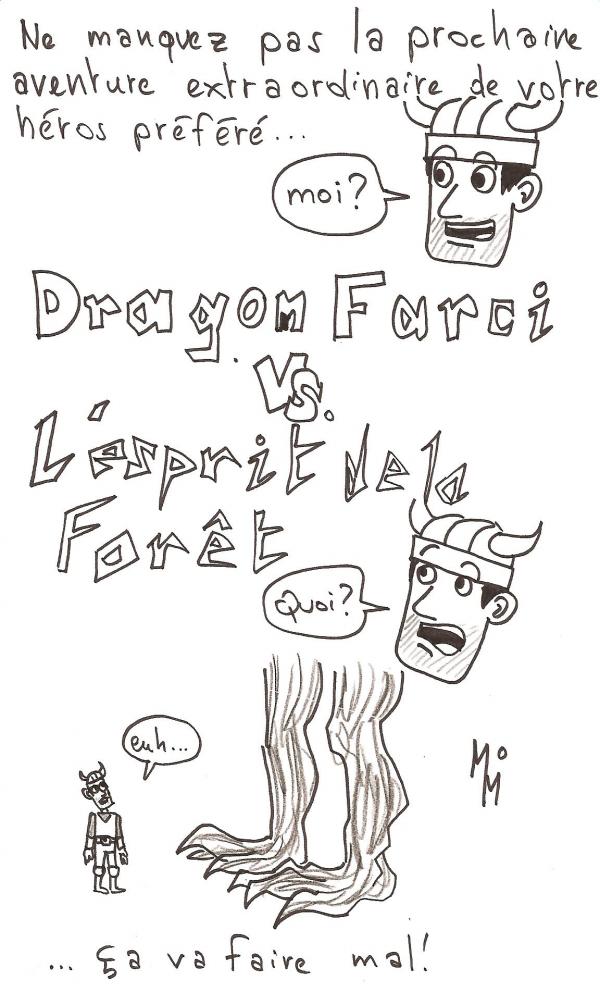 Ne manquez pas la prochaine
aventure extraordinaire de votre
héros préféré...
moi?
Dragon Farci
vs.
L'esprit de la
Forêt
Quoi?
euh...
MiM
... ça va faire mal!